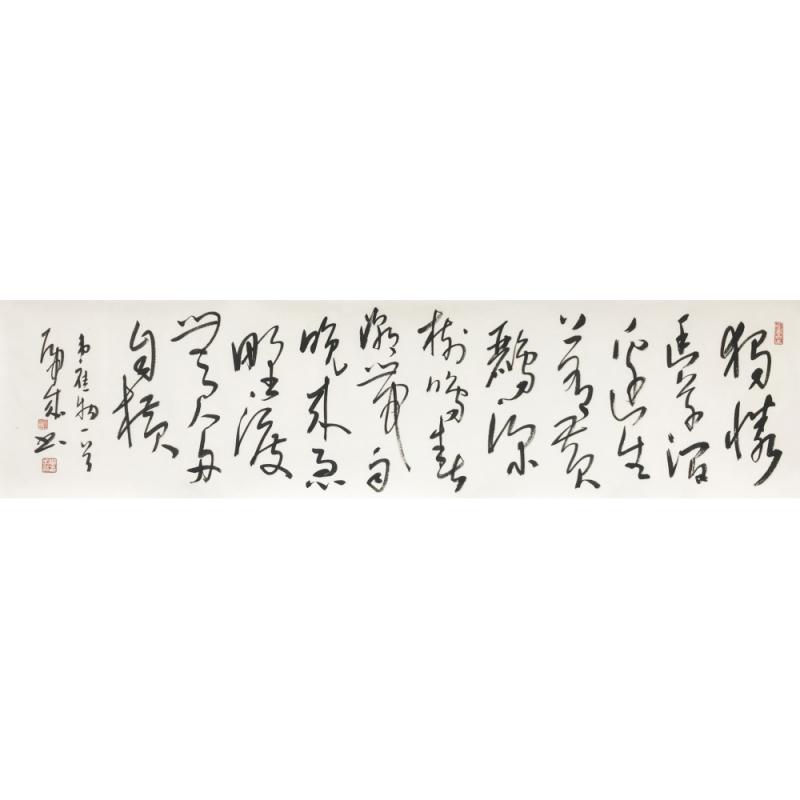 獨憐
幽草澗
邊生
上有黄
鸝深
樹鳴春
潮帶雨
晚來急
野渡
無人舟
自橫
韋應物一首
書